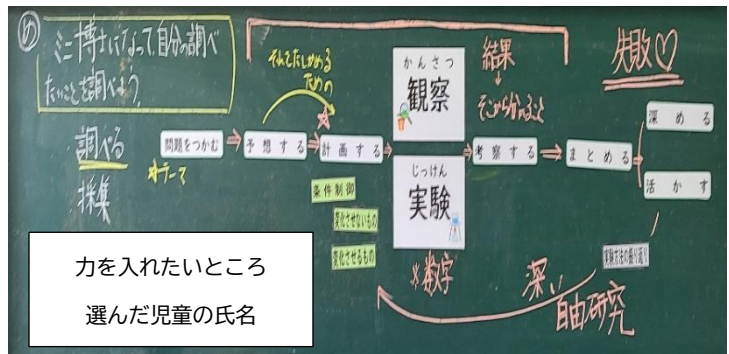 め
ミニ博士になって、自分の調べ
たいことを調べよう。
調べる
採集
問題をつかむ
＊テーマ
予想する
それをたしかめる
ための
計画する
条件制御
変化させないもの
変化させるもの
かんさつ
観察
じっけん
実験
※数字
結果
そこから分かること
考察する
まとめる
失敗♡
深める
活かす
実験方法の振り返り
深い
自由研究
力を入れたいところ
選んだ児童の氏名